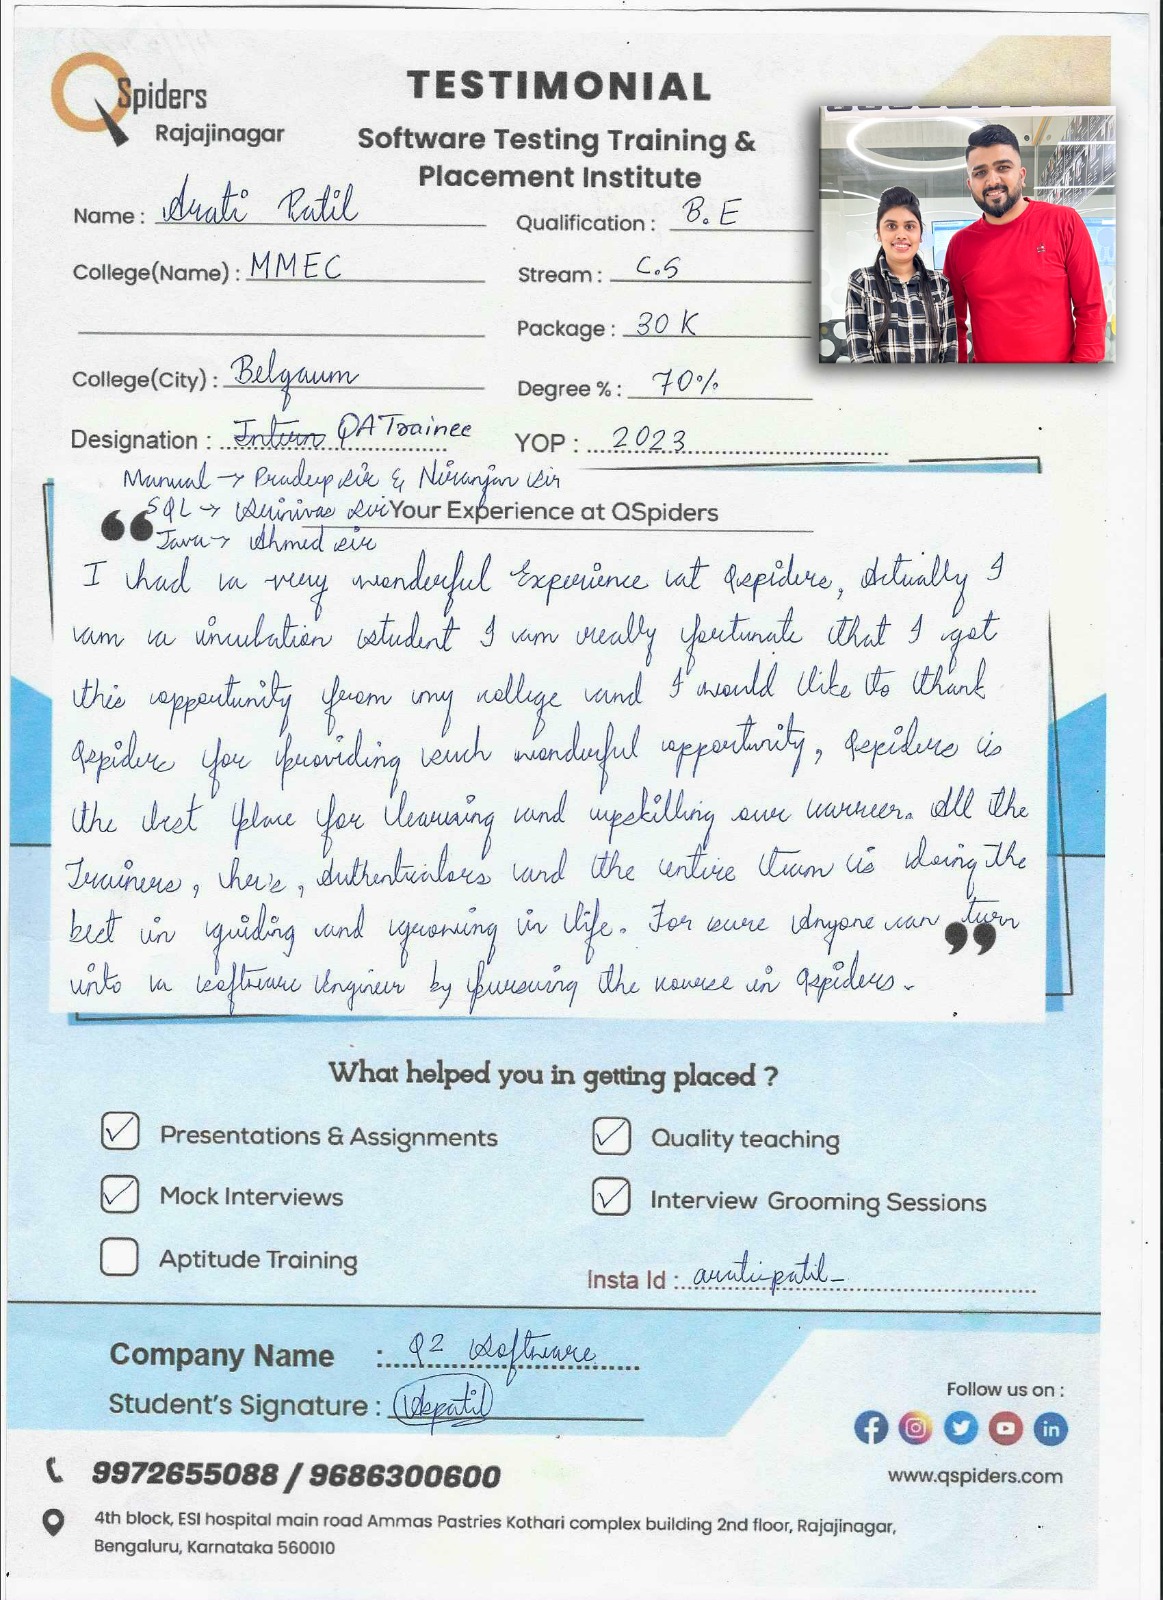 QSpiders
Rajajinagar
TESTIMONIAL
Software Testing Training &
Placement Institute
Name : Arati Patil
Qualification : B.E
College(Name) : MMEC
Stream : C.S
Package : 30 K
College(City) : Belgaum
Degree % : 70%
Designation : Intern QA Trainee
YOP : 2023
Manual → Pradeep sir & Niranjan sir
SQL → Srinivas sir
Your Experience at QSpiders
Java → Ahmed sir
I had a very wonderful Experience at Qspiders, Actually I
am a incubation student I am really fortunate that I got
this opportunity from my college and I would like to thank
Qspiders for providing such wonderful opportunity, Qspiders is
the best place for learning and upskilling our carreer. All the
Trainers, hr's, Authenticators and the entire team is doing the
best in guiding and grooming in life. For sure Anyone can turn
into a software Engineer by pursuing the course in Qspiders.
What helped you in getting placed ?
Presentations & Assignments
Quality teaching
Mock Interviews
Interview Grooming Sessions
Aptitude Training
Insta Id : arati-patil_
Company Name : Q2 Software
Student's Signature :
Follow us on :
9972655088 / 9686300600
www.qspiders.com
4th block, ESI hospital main road Ammas Pastries Kothari complex building 2nd floor, Rajajinagar,
Bengaluru, Karnataka 560010